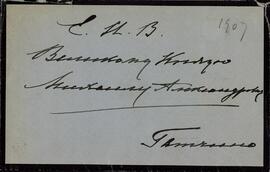 Е. И. В. 1907
Великому Князю
Михаилу Александровичу
Гатчино